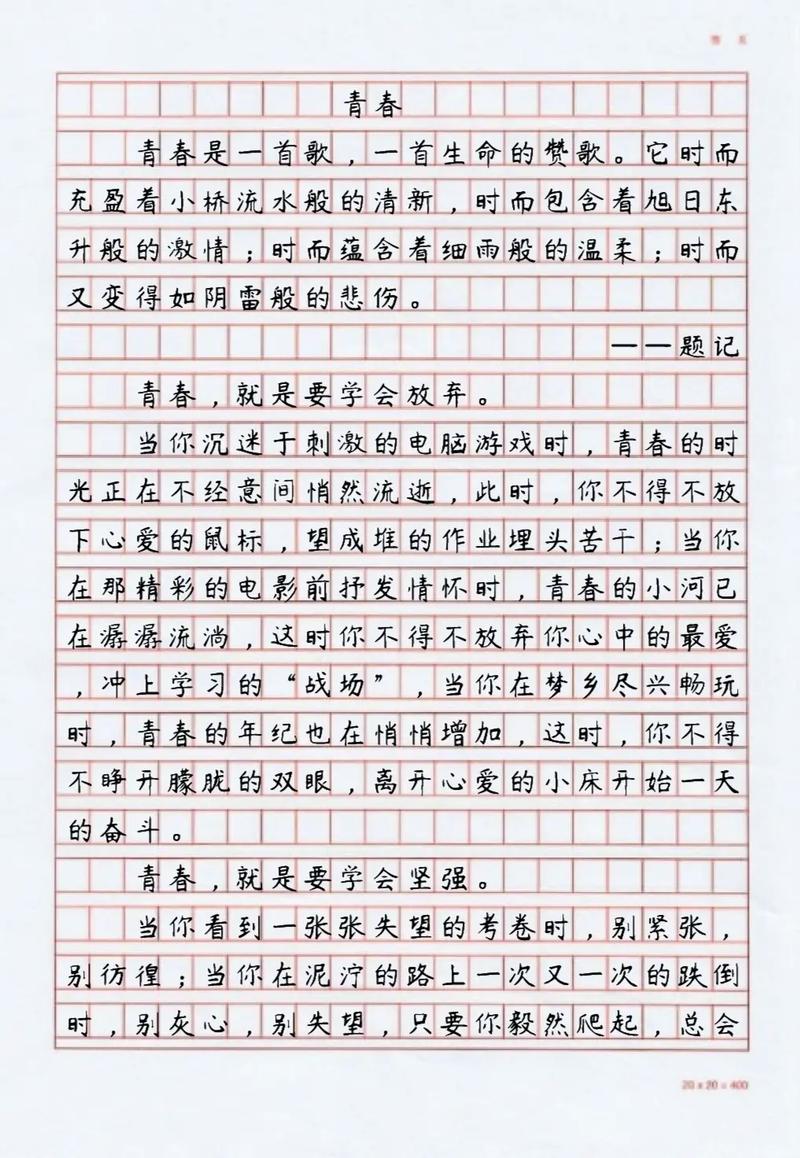 青春
青春是一首歌，一首生命的赞歌。它时而
充盈着小桥流水般的清新，时而包含着旭日东
升般的激情；时而蕴含着细雨般的温柔；时而
又变得如阴雷般的悲伤。
——题记
青春，就是要学会放弃。
当你沉迷于刺激的电脑游戏时，青春的时
光正在不经意间悄然流逝，此时，你不得不放
下心爱的鼠标，望成堆的作业埋头苦干；当你
在那精彩的电影前抒发情怀时，青春的小河已
在潺潺流淌，这时你不得不放弃你心中的最爱
，冲上学习的“战场”，当你在梦乡尽兴畅玩
时，青春的年纪也在悄悄增加，这时，你不得
不睁开朦胧的双眼，离开心爱的小床开始一天
的奋斗。
青春，就是要学会坚强。
当你看到一张张失望的考卷时，别紧张，
别彷徨；当你在泥泞的路上一次又一次的跌倒
时，别灰心，别失望，只要你毅然爬起，总会
20×20=400